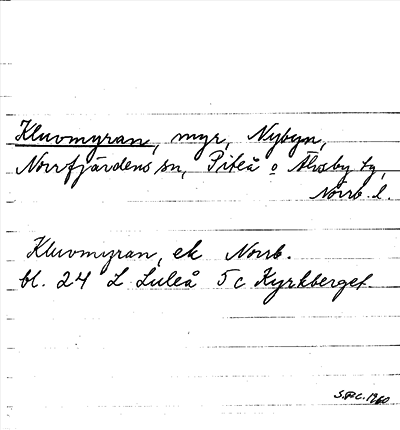 Kluvmyran, myr, Nybyn,
Norrfjärdens sn, Piteå o Älvsby tg,
Norrb. l.
Kluvmyran, ek Norrb.
bl. 24 L Luleå 5 c Kyrkberget
1960